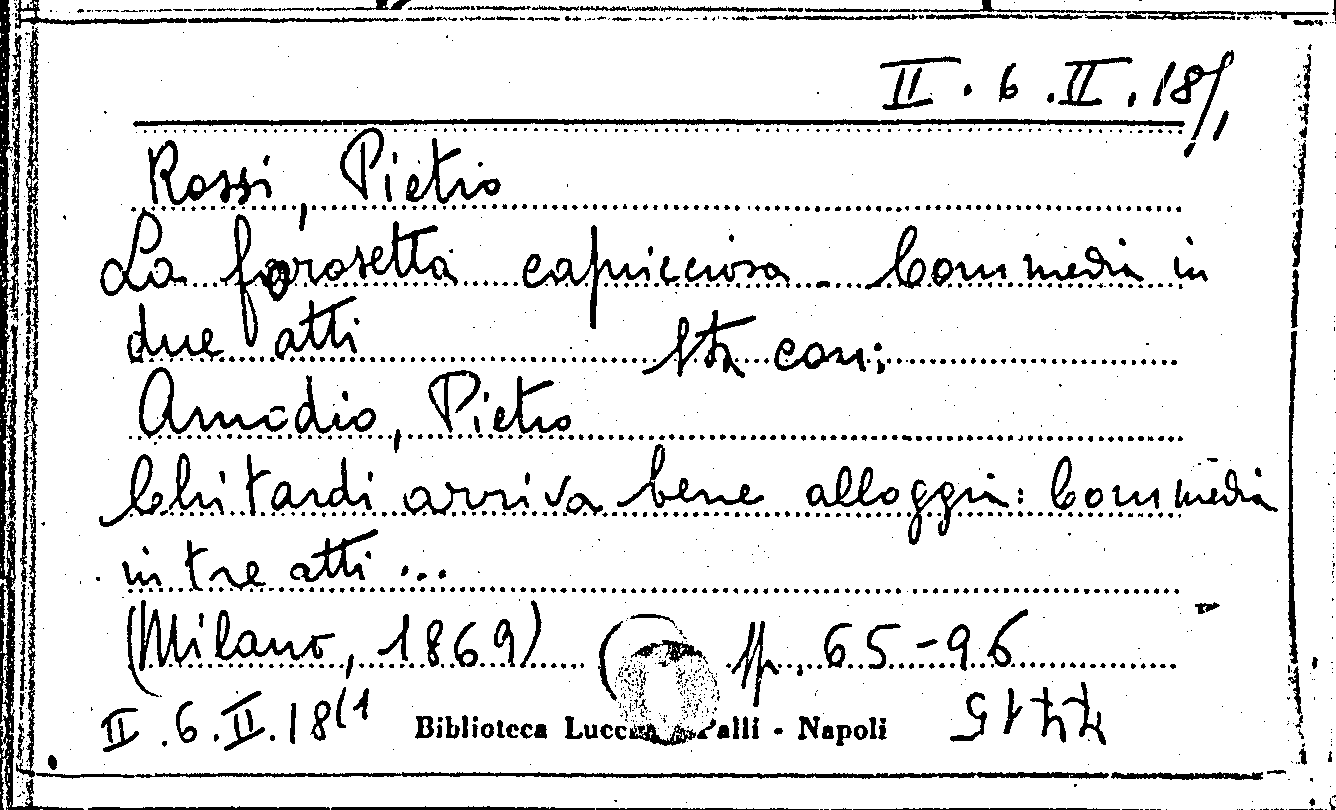 II . 6 . II . 18/1
Rossi, Pietro
La forosetta capricciosa. Commedia in
due atti con:
Amodio, Pietro
Chi tardi arriva bene alloggia: Commedia
in tre atti ...
(Milano, 1869) pp. 65-96
II . 6 . II . 18(1 Biblioteca Lucchesi Palli - Napoli